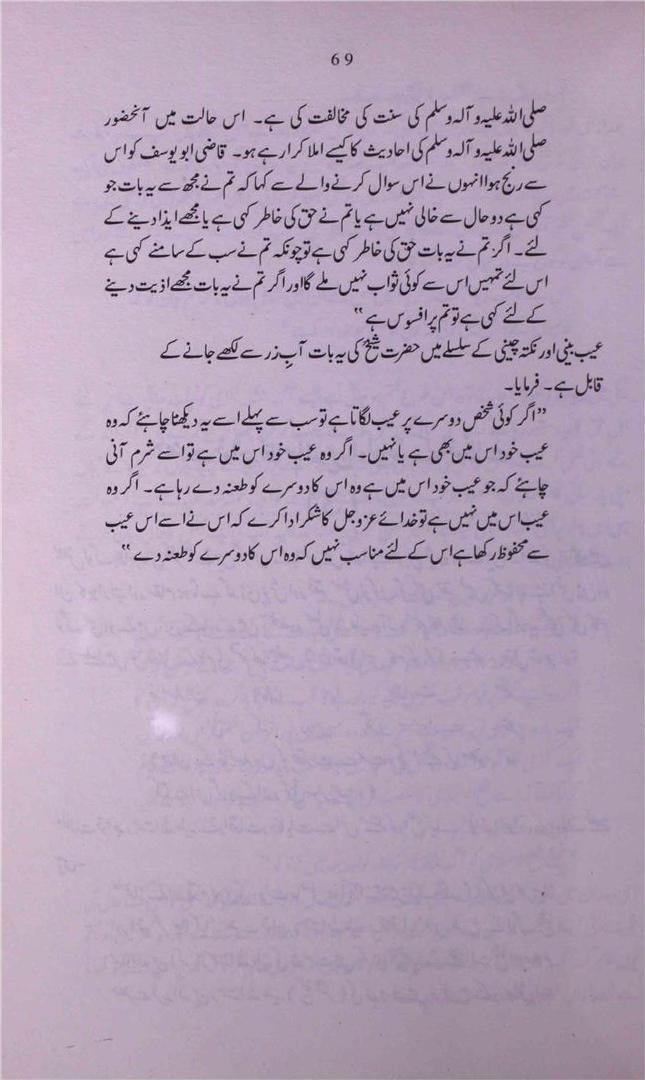 69
صلی اللہ علیہ و آلہ وسلم کی سنت کی مخالفت کی ہے۔ اس حالت میں آنحضور
صلی اللہ علیہ و آلہ وسلم کی احادیث کا کیسے املا کرا رہے ہو۔ قاضی ابو یوسف کو اس
سے رنج ہوا انہوں نے اس سوال کرنے والے سے کہا کہ تم نے مجھ سے یہ بات جو
کہی ہے دو حال سے خالی نہیں ہے یا تم نے حق کی خاطر کہی ہے یا مجھے ایذا دینے کے
لئے۔ اگر تم نے یہ بات حق کی خاطر کہی ہے تو چونکہ تم نے سب کے سامنے کہی ہے
اس لئے تمہیں اس سے کوئی ثواب نہیں ملے گا اور اگر تم نے یہ بات مجھے اذیت دینے
کے لئے کہی ہے تو تم پر افسوس ہے "
عیب بینی اور نکتہ چینی کے سلسلے میں حضرت شیخؒ کی یہ بات آبِ زر سے لکھے جانے کے
قابل ہے۔ فرمایا۔
"اگر کوئی شخص دوسرے پر عیب لگاتا ہے تو سب سے پہلے اسے یہ دیکھنا چاہئے کہ وہ
عیب خود اس میں بھی ہے یا نہیں۔ اگر وہ عیب خود اس میں ہے تو اسے شرم آنی
چاہئے کہ جو عیب خود اس میں ہے وہ اس کا دوسرے کو طعنہ دے رہا ہے۔ اگر وہ
عیب اس میں نہیں ہے تو خدائے عزوجل کا شکر ادا کرے کہ اس نے اسے اس عیب
سے محفوظ رکھا ہے اس کے لئے مناسب نہیں کہ وہ اس کا دوسرے کو طعنہ دے "